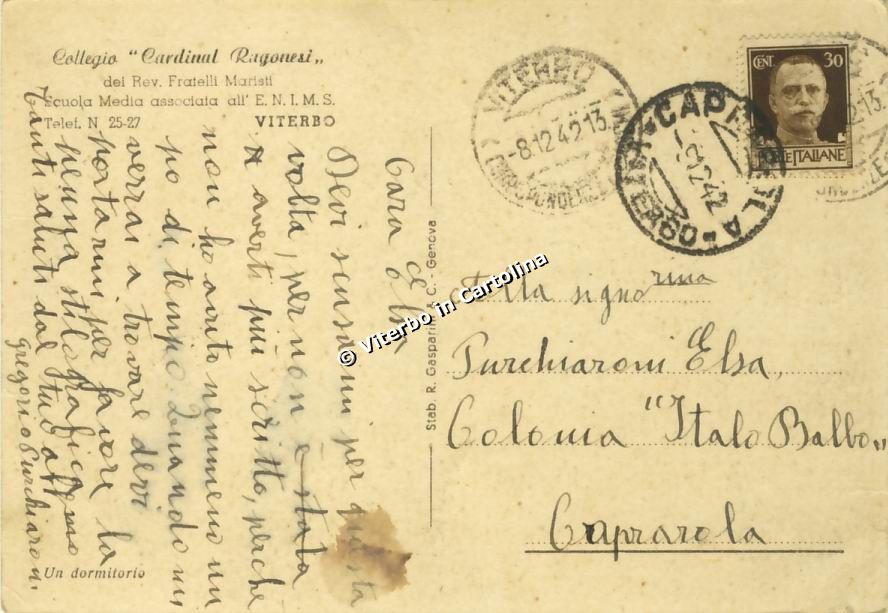 Collegio "Cardinal Ragonesi„
dei Rev. Fratelli Maristi
Scuola Media associata all' E. N. I. M. S.
Telef. N 25-27 VITERBO
Cara Elsa
Devi scusarmi per questa
volta, per non è stata
averti più scritto, perche
non ho avuto nemmeno un
po di tempo. Quando mi
verrai a trovare devi
portarmi per favore la
penna stilografica
Tanti saluti dal tuo aff.mo
Gregorio Purchiaroni
Un dormitorio
Stab. R. Gasparini & C. - Genova
VITERBO
-8.12.42.13
CAPRAROLA
-9.12.42
CENT. 30
POSTE ITALIANE
Alla signorina
Purchiaroni Elsa,
Colonia "Italo Balbo„
Caprarola
© Viterbo in Cartolina